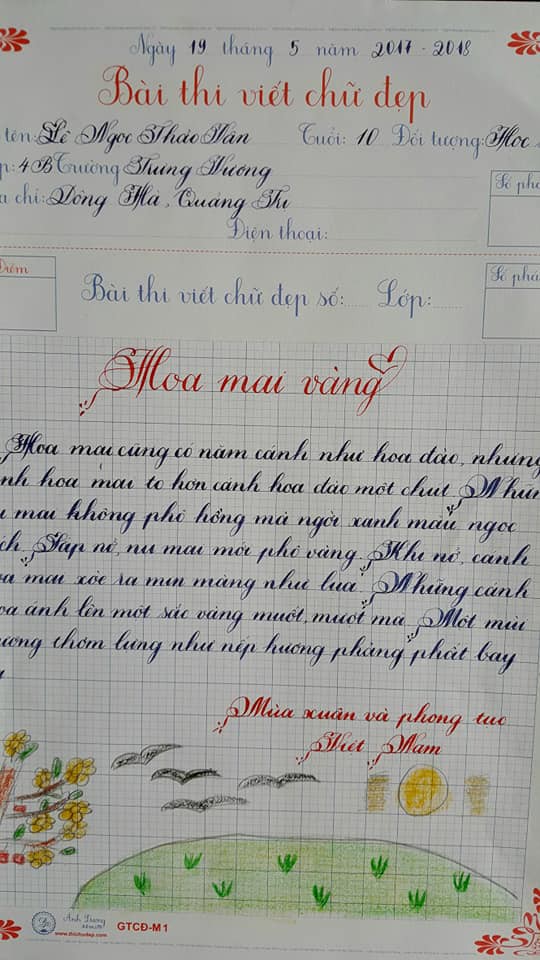 Ngày 19 tháng 5 năm 2017 - 2018
Bài thi viết chữ đẹp
tên: Lê Ngọc Thảo Vân Tuổi: 10 Đối tượng: Học
p: 4B Trường Trưng Vương
a chỉ: Đông Hà, Quảng Trị
Điện thoại:
Số phá
Điểm
Bài thi viết chữ đẹp số: Lớp:
Số phá
Hoa mai vàng
Hoa mai cũng có năm cánh như hoa đào, nhưng
nh hoa mai to hơn cánh hoa đào một chút. Nhữn
ụ mai không phô hồng mà ngời xanh màu ngọc
ch. Sắp nở, nụ mai mới phô vàng. Khi nở, cánh
oa mai xòe ra mịn màng như lụa. Những cánh
oa ánh lên một sắc vàng muốt, mượt mà. Một mùi
ương thơm lựng như nếp hương phảng phất bay
Mùa xuân và phong tục
Việt Nam
Ánh Dương
www.thichudep.com
GTCĐ-M1